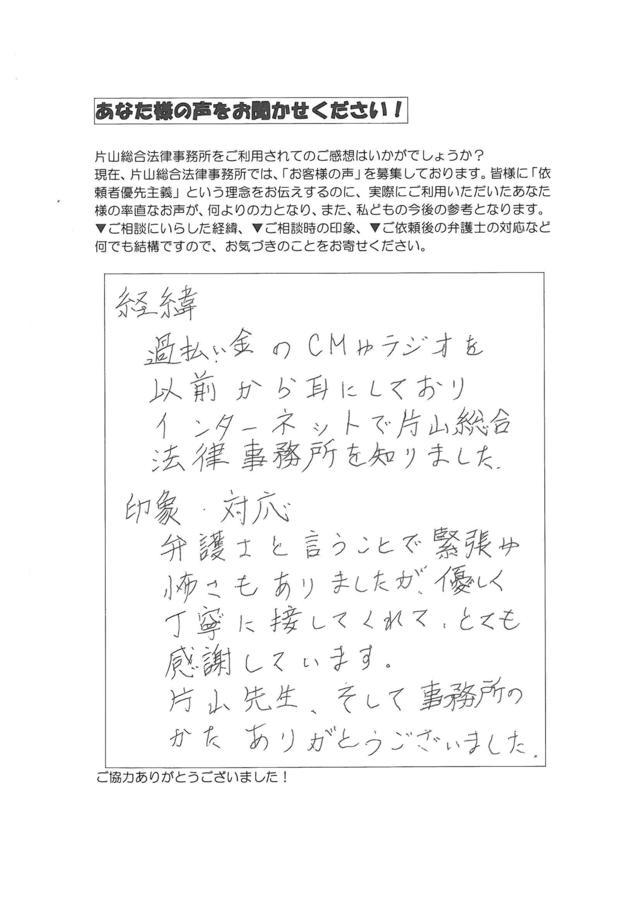 あなた様の声をお聞かせください！
片山総合法律事務所をご利用されてのご感想はいかがでしょうか？
現在、片山総合法律事務所では、「お客様の声」を募集しております。皆様に「依
頼者優先主義」という理念をお伝えするのに、実際にご利用いただいたあなた
様の率直なお声が、何よりの力となり、また、私どもの今後の参考となります。
▼ご相談にいらした経緯、▼ご相談時の印象、▼ご依頼後の弁護士の対応など
何でも結構ですので、お気づきのことをお寄せください。
経緯
過払い金のCMやラジオを
以前から耳にしており
インターネットで片山総合
法律事務所を知りました.
印象・対応
弁護士と言うことで緊張や
怖さもありましたが、優しく
丁寧に接してくれて、とても
感謝しています。
片山先生、そして事務所の
かた ありがとうございました.
ご協力ありがとうございました！